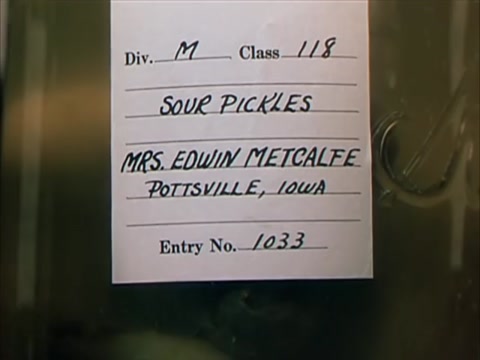 Div. M Class 118
SOUR PICKLES
MRS. EDWIN METCALFE
POTTSVILLE, IOWA
Entry No. 1033